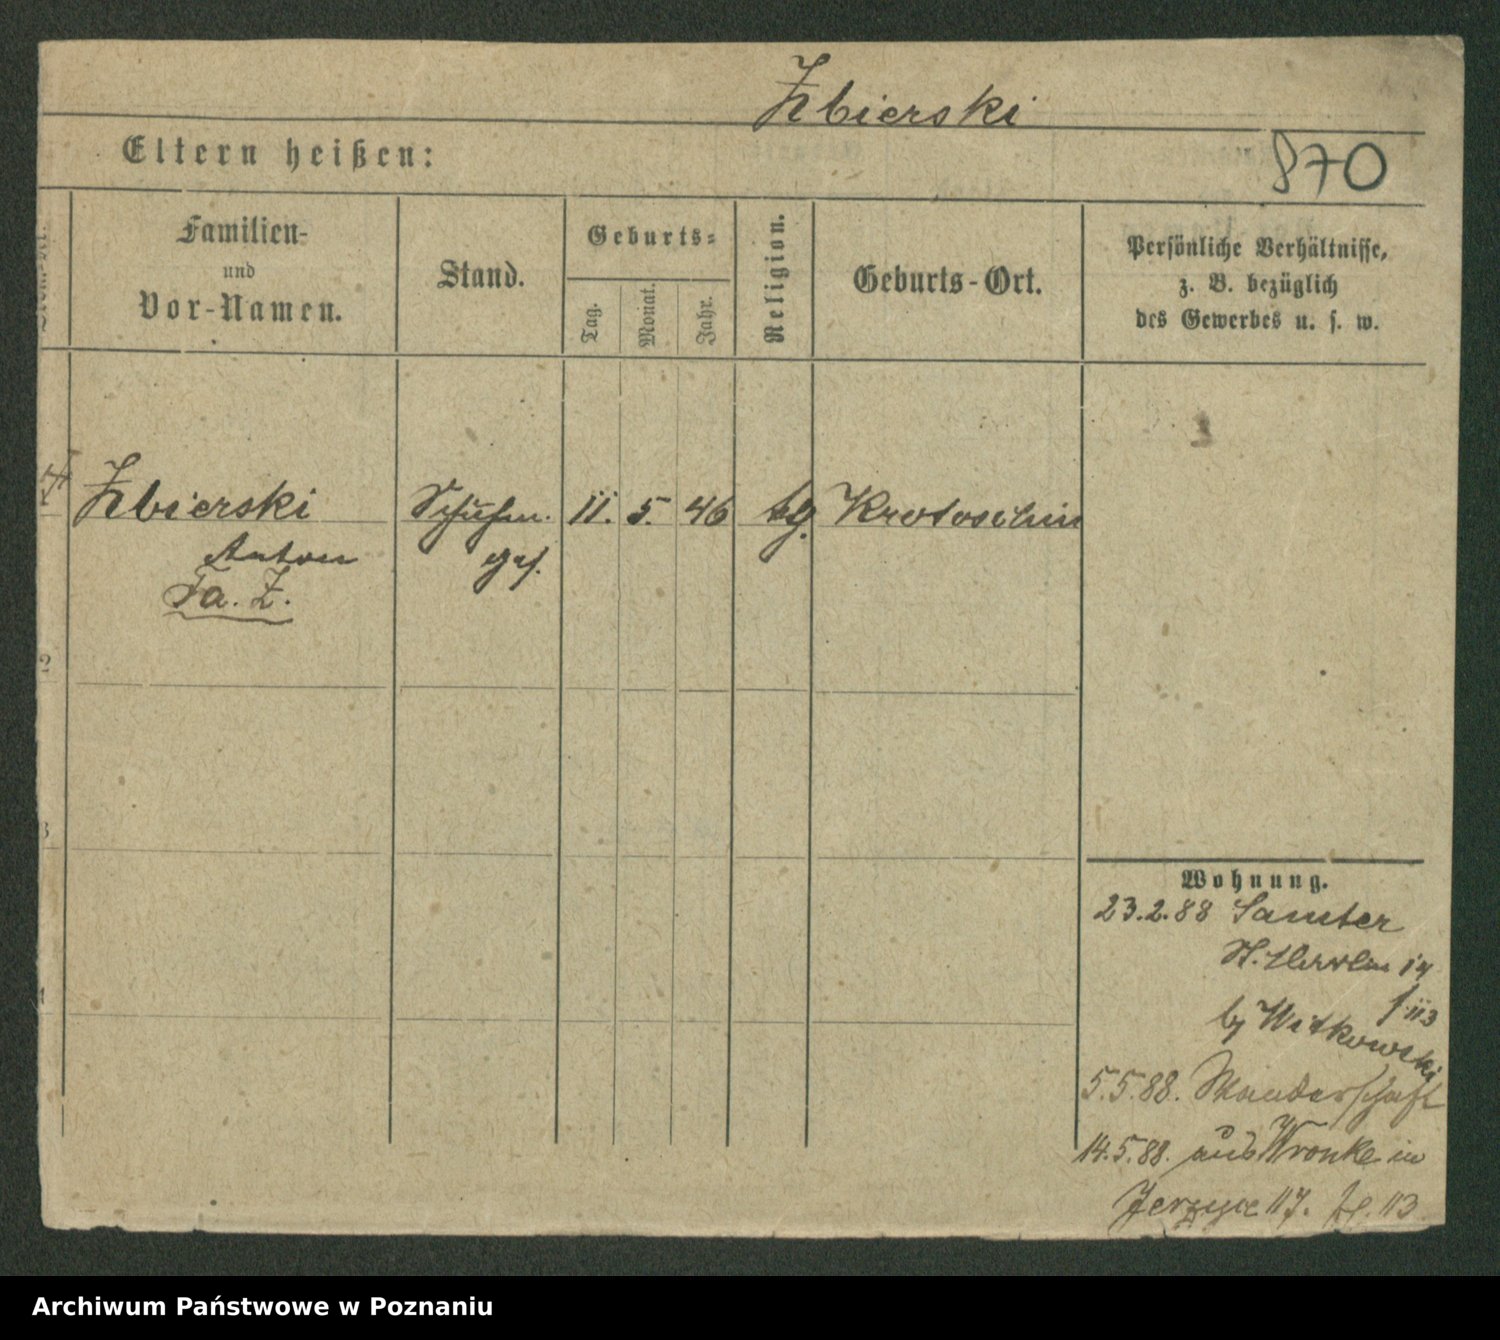 Zbierski
870
Eltern heißen:
Familien-
und
Vor-Namen.
Stand.
Geburts-
Tag.
Monat.
Jahr.
Religion.
Geburts-Ort.
Persönliche Verhältnisse,
z. B. bezüglich
des Gewerbes u. s. w.
Zbierski
Anton
Fa. Z.
Schuhm.
ges.
11.
5.
46
kg.
Krotoschin
2
3
Wohnung.
23.2.88 Samter
14
113
by Witkowski
5.5.88. Wanderschaft
14.5.88. aus Wronke in
Jerzyce 117. 113
Archiwum Państwowe w Poznaniu